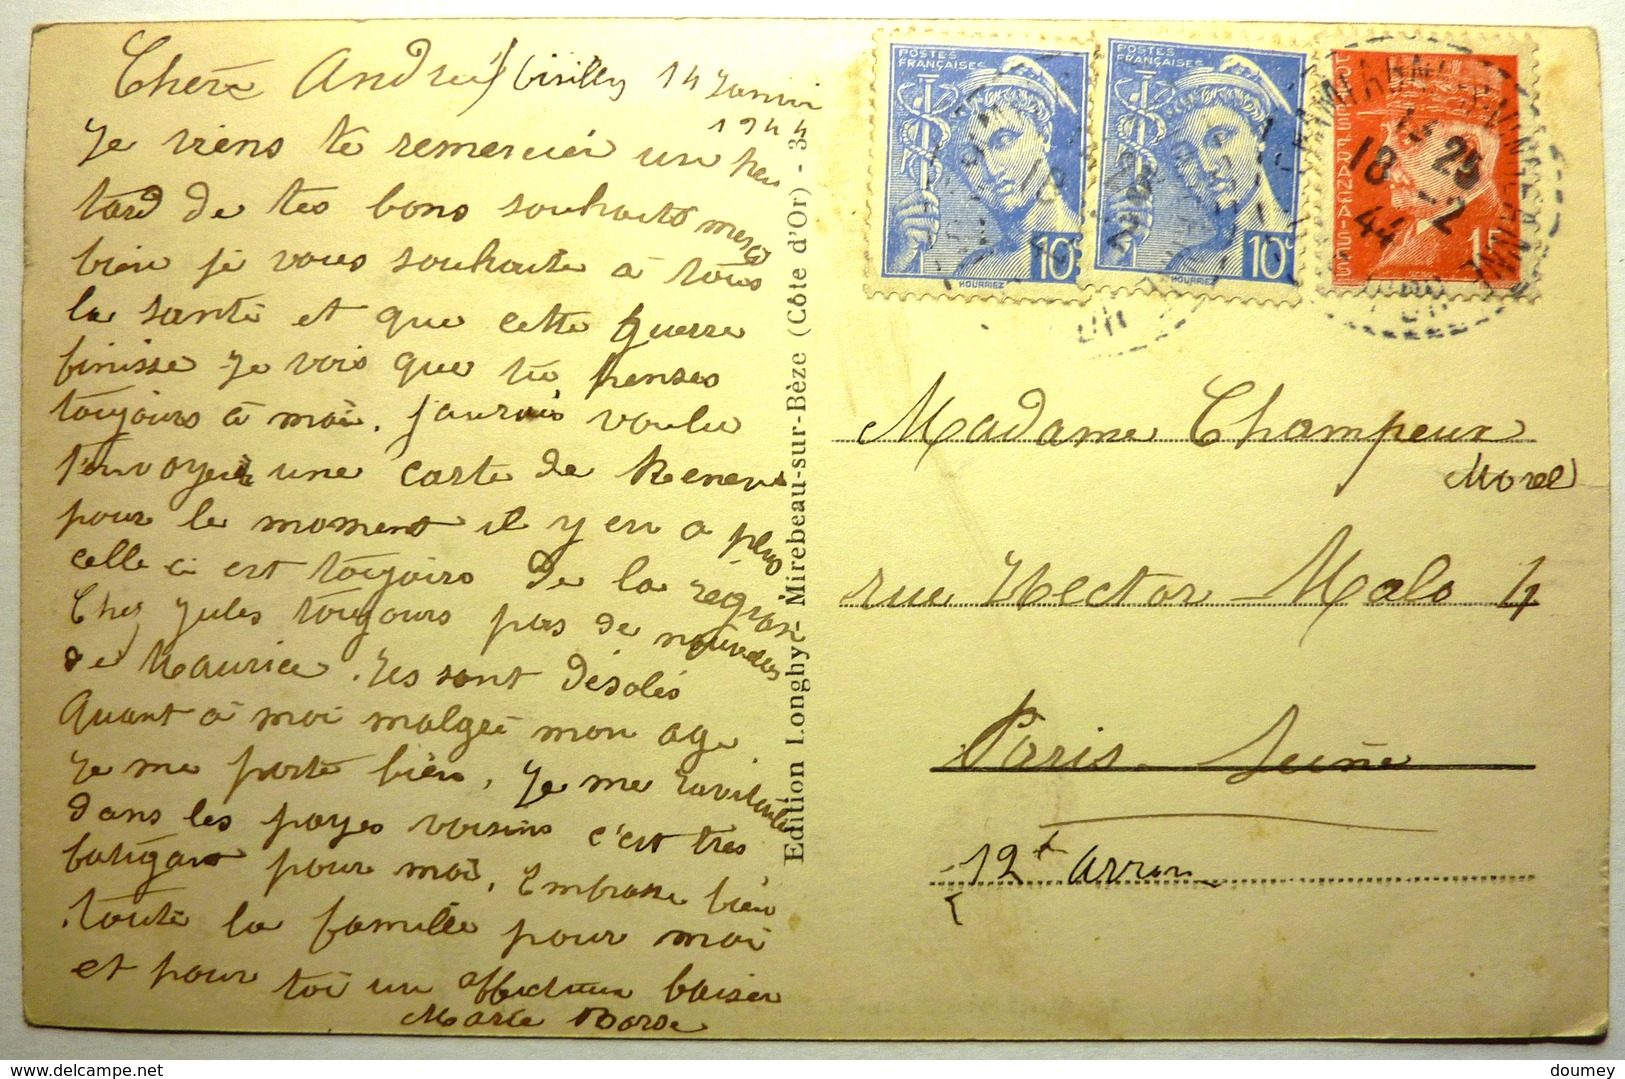 Chère Andrée 14 Janvier
1944
Je viens te remercier un peu
tard de tes bons souhaits merci
bien je vous souhaite à tous
la santé et que cette guerre
finisse Je vois que tu penses
toujours à moi. J'aurais voulu
t'envoyer une carte de Renève
pour le moment il y en a plus
celle ci est toujours de la région
Chez Jules toujours pas de nouvelles
de Maurice. Ils sont désolés
Quant à moi malgré mon age
Je me porte bien, Je me ravitaille
dans les payes voisins c'est très
fatigant pour moi, Embrasse bien
toute la famille pour moi
et pour toi un affectueux baiser
Marie
Edition Longhy - Mirebeau-sur-Bèze (Côte d'Or) - 34
POSTES
FRANÇAISES
10c
HOURRIEZ
POSTES
FRANÇAISES
10c
HOURRIEZ
POSTES FRANÇAISES
18 25
-2
44
Madame Champeux
Morel
rue Hector Malo 4
Paris - Seine
12e Arron
delcampe.net
doumey